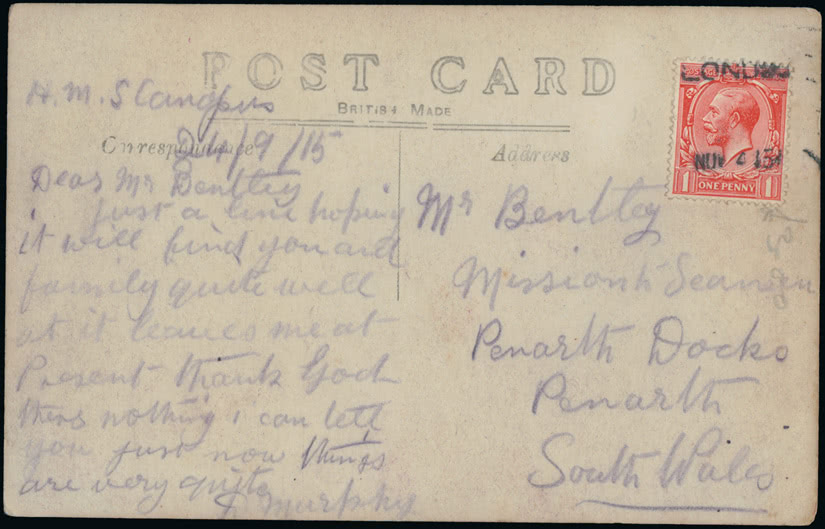 POST CARD
BRITISH MADE
H.M.S Canopus
Correspondence
24/9/15
Address
Dear Mr Bentley
just a line hoping
it will find you and
family quite well
as it leaves me at
Present thank God
theres nothing i can tell
you just now things
are very quite
J Murphy
LONDON
NOV 4 15
ONE PENNY
1 1
Mr Bentley
Mission to Seamen
Penarth Docks
Penarth
South Wales